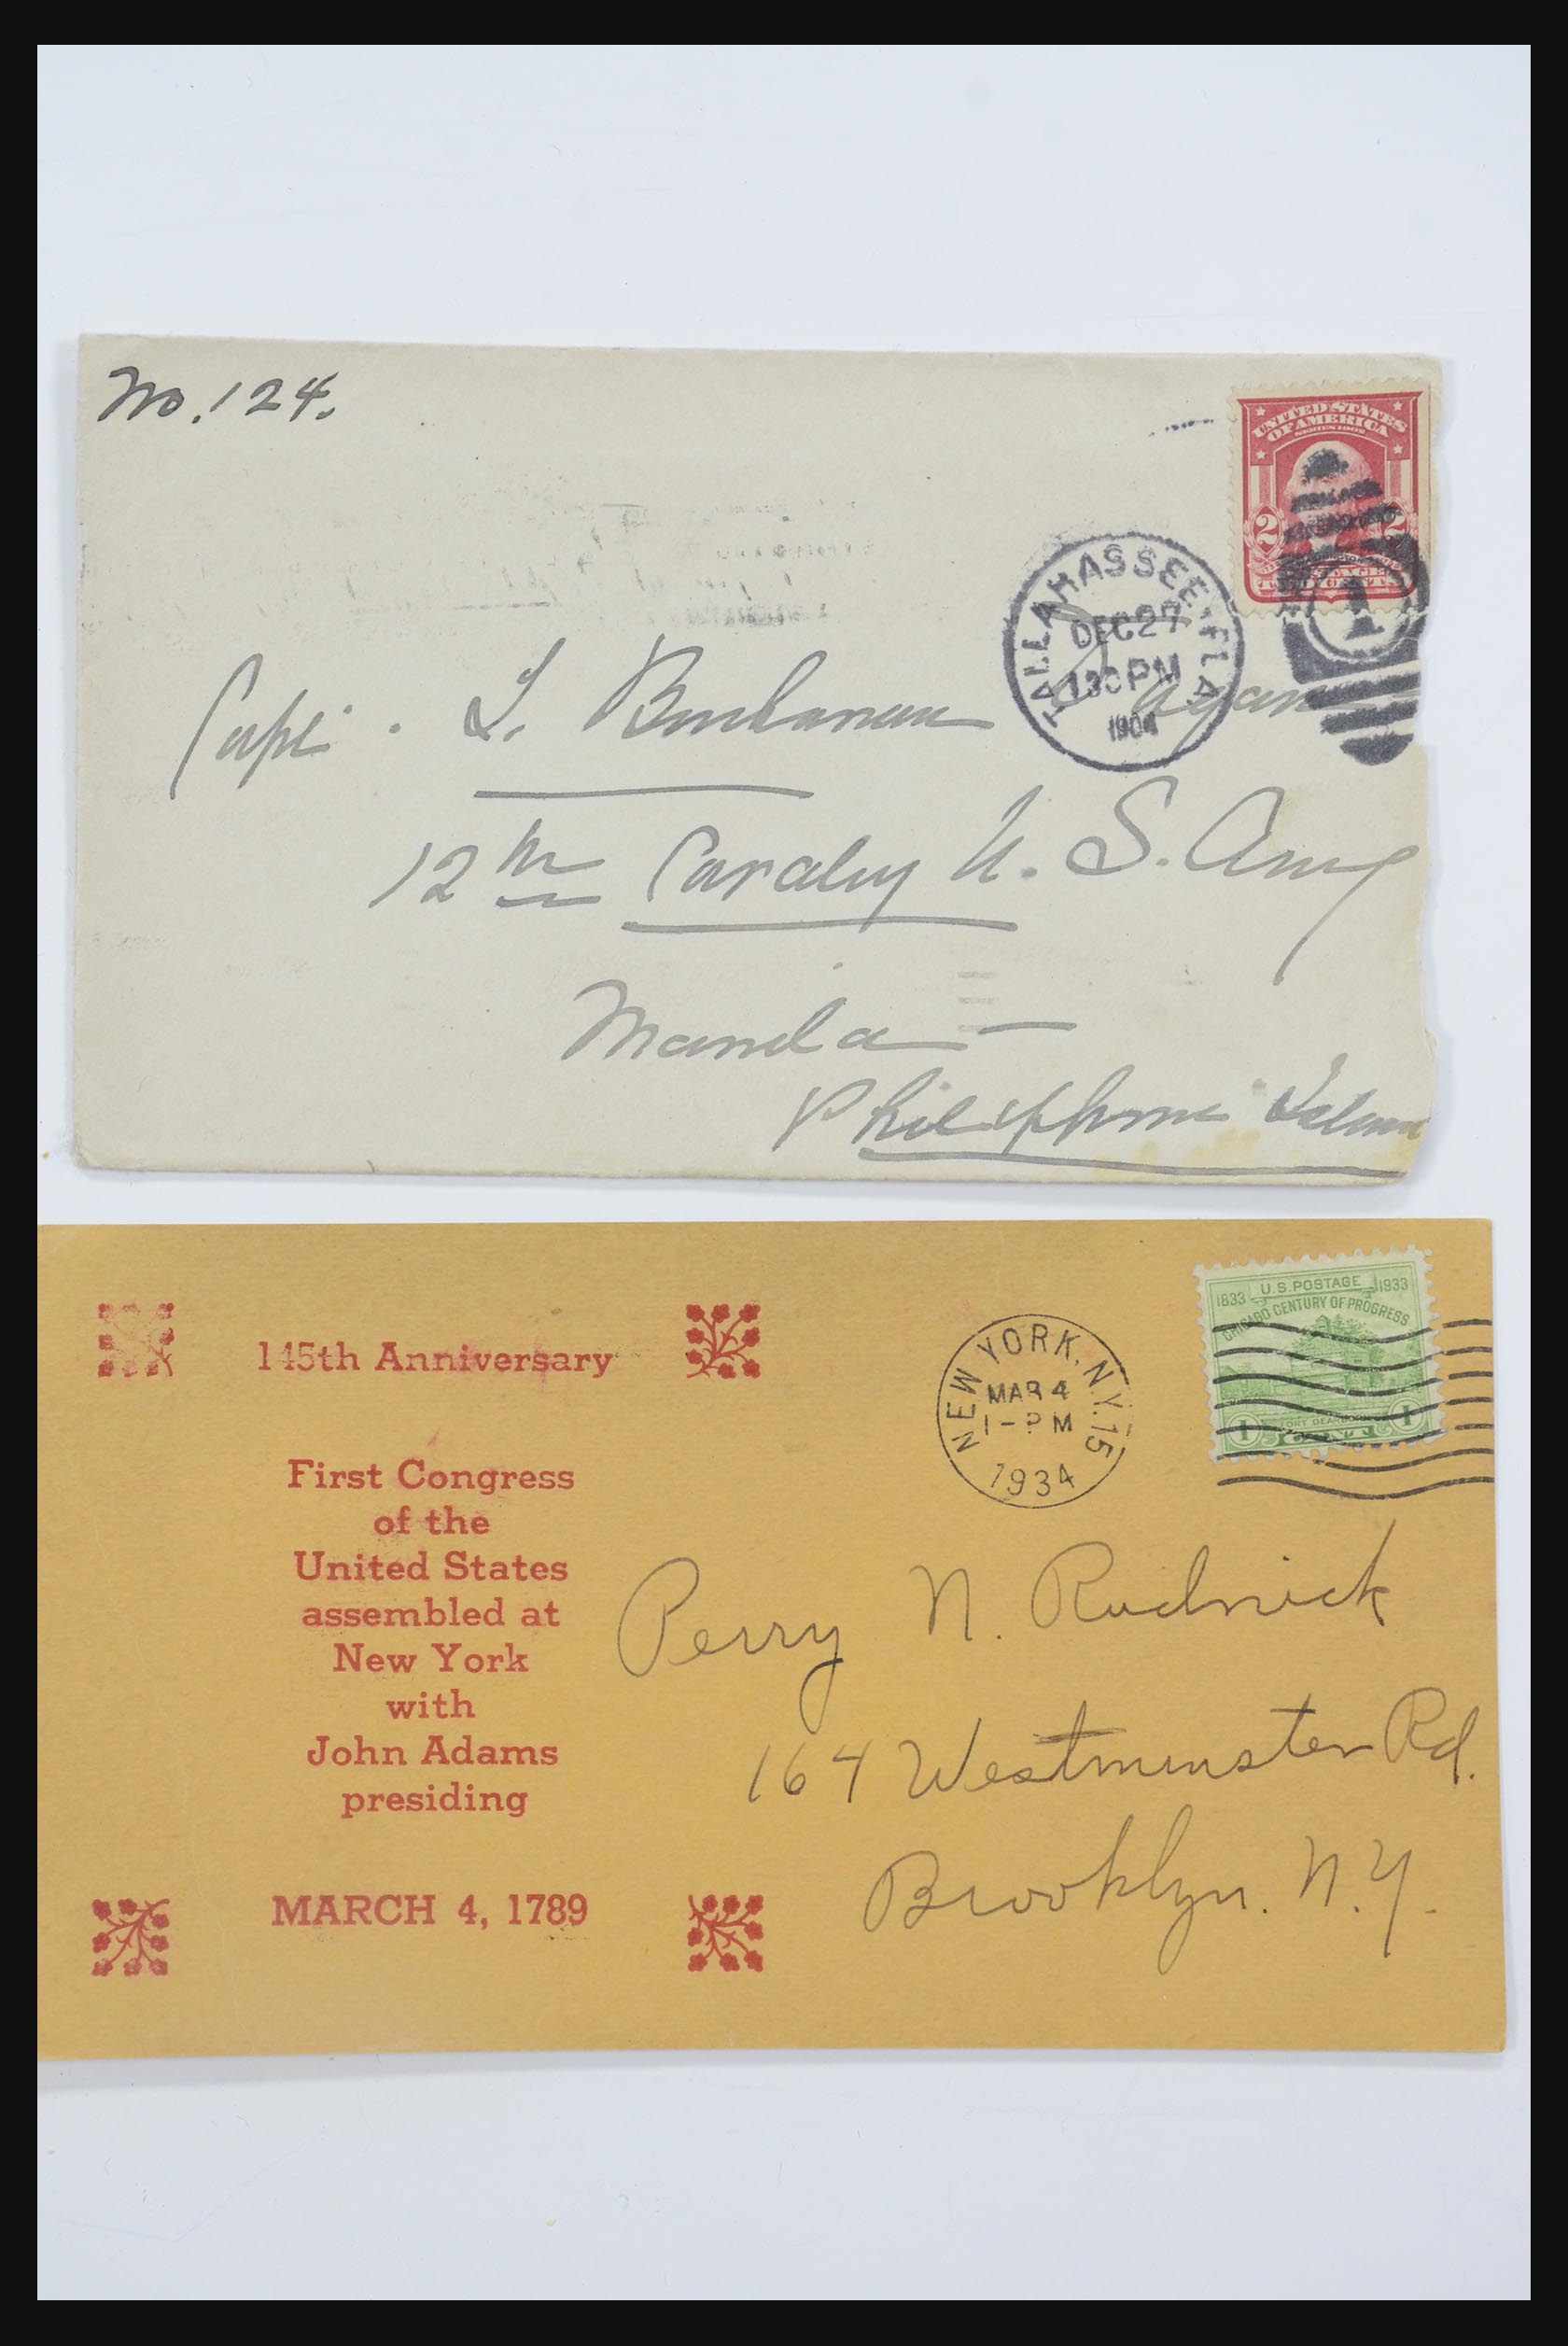 No. 124.
UNITED STATES
OF AMERICA
SERIES 1902
2 2
TALLAHASSEE, FLA.
DEC 27
130 PM
1904
1
Capt. L. Buchanan
12th Cavalry U. S. Army
Manila —
Philipphine Islan
145th Anniversary
First Congress
of the
United States
assembled at
New York
with
John Adams
presiding
MARCH 4, 1789
NEW YORK, N.Y. 15
MAR 4
1 - PM
1934
1833 U.S. POSTAGE 1933
CHICAGO CENTURY OF PROGRESS
FORT DEARBORN
1 CENT 1
Perry N. Rudnick
164 Westminster Rd.
Brooklyn. N.Y.